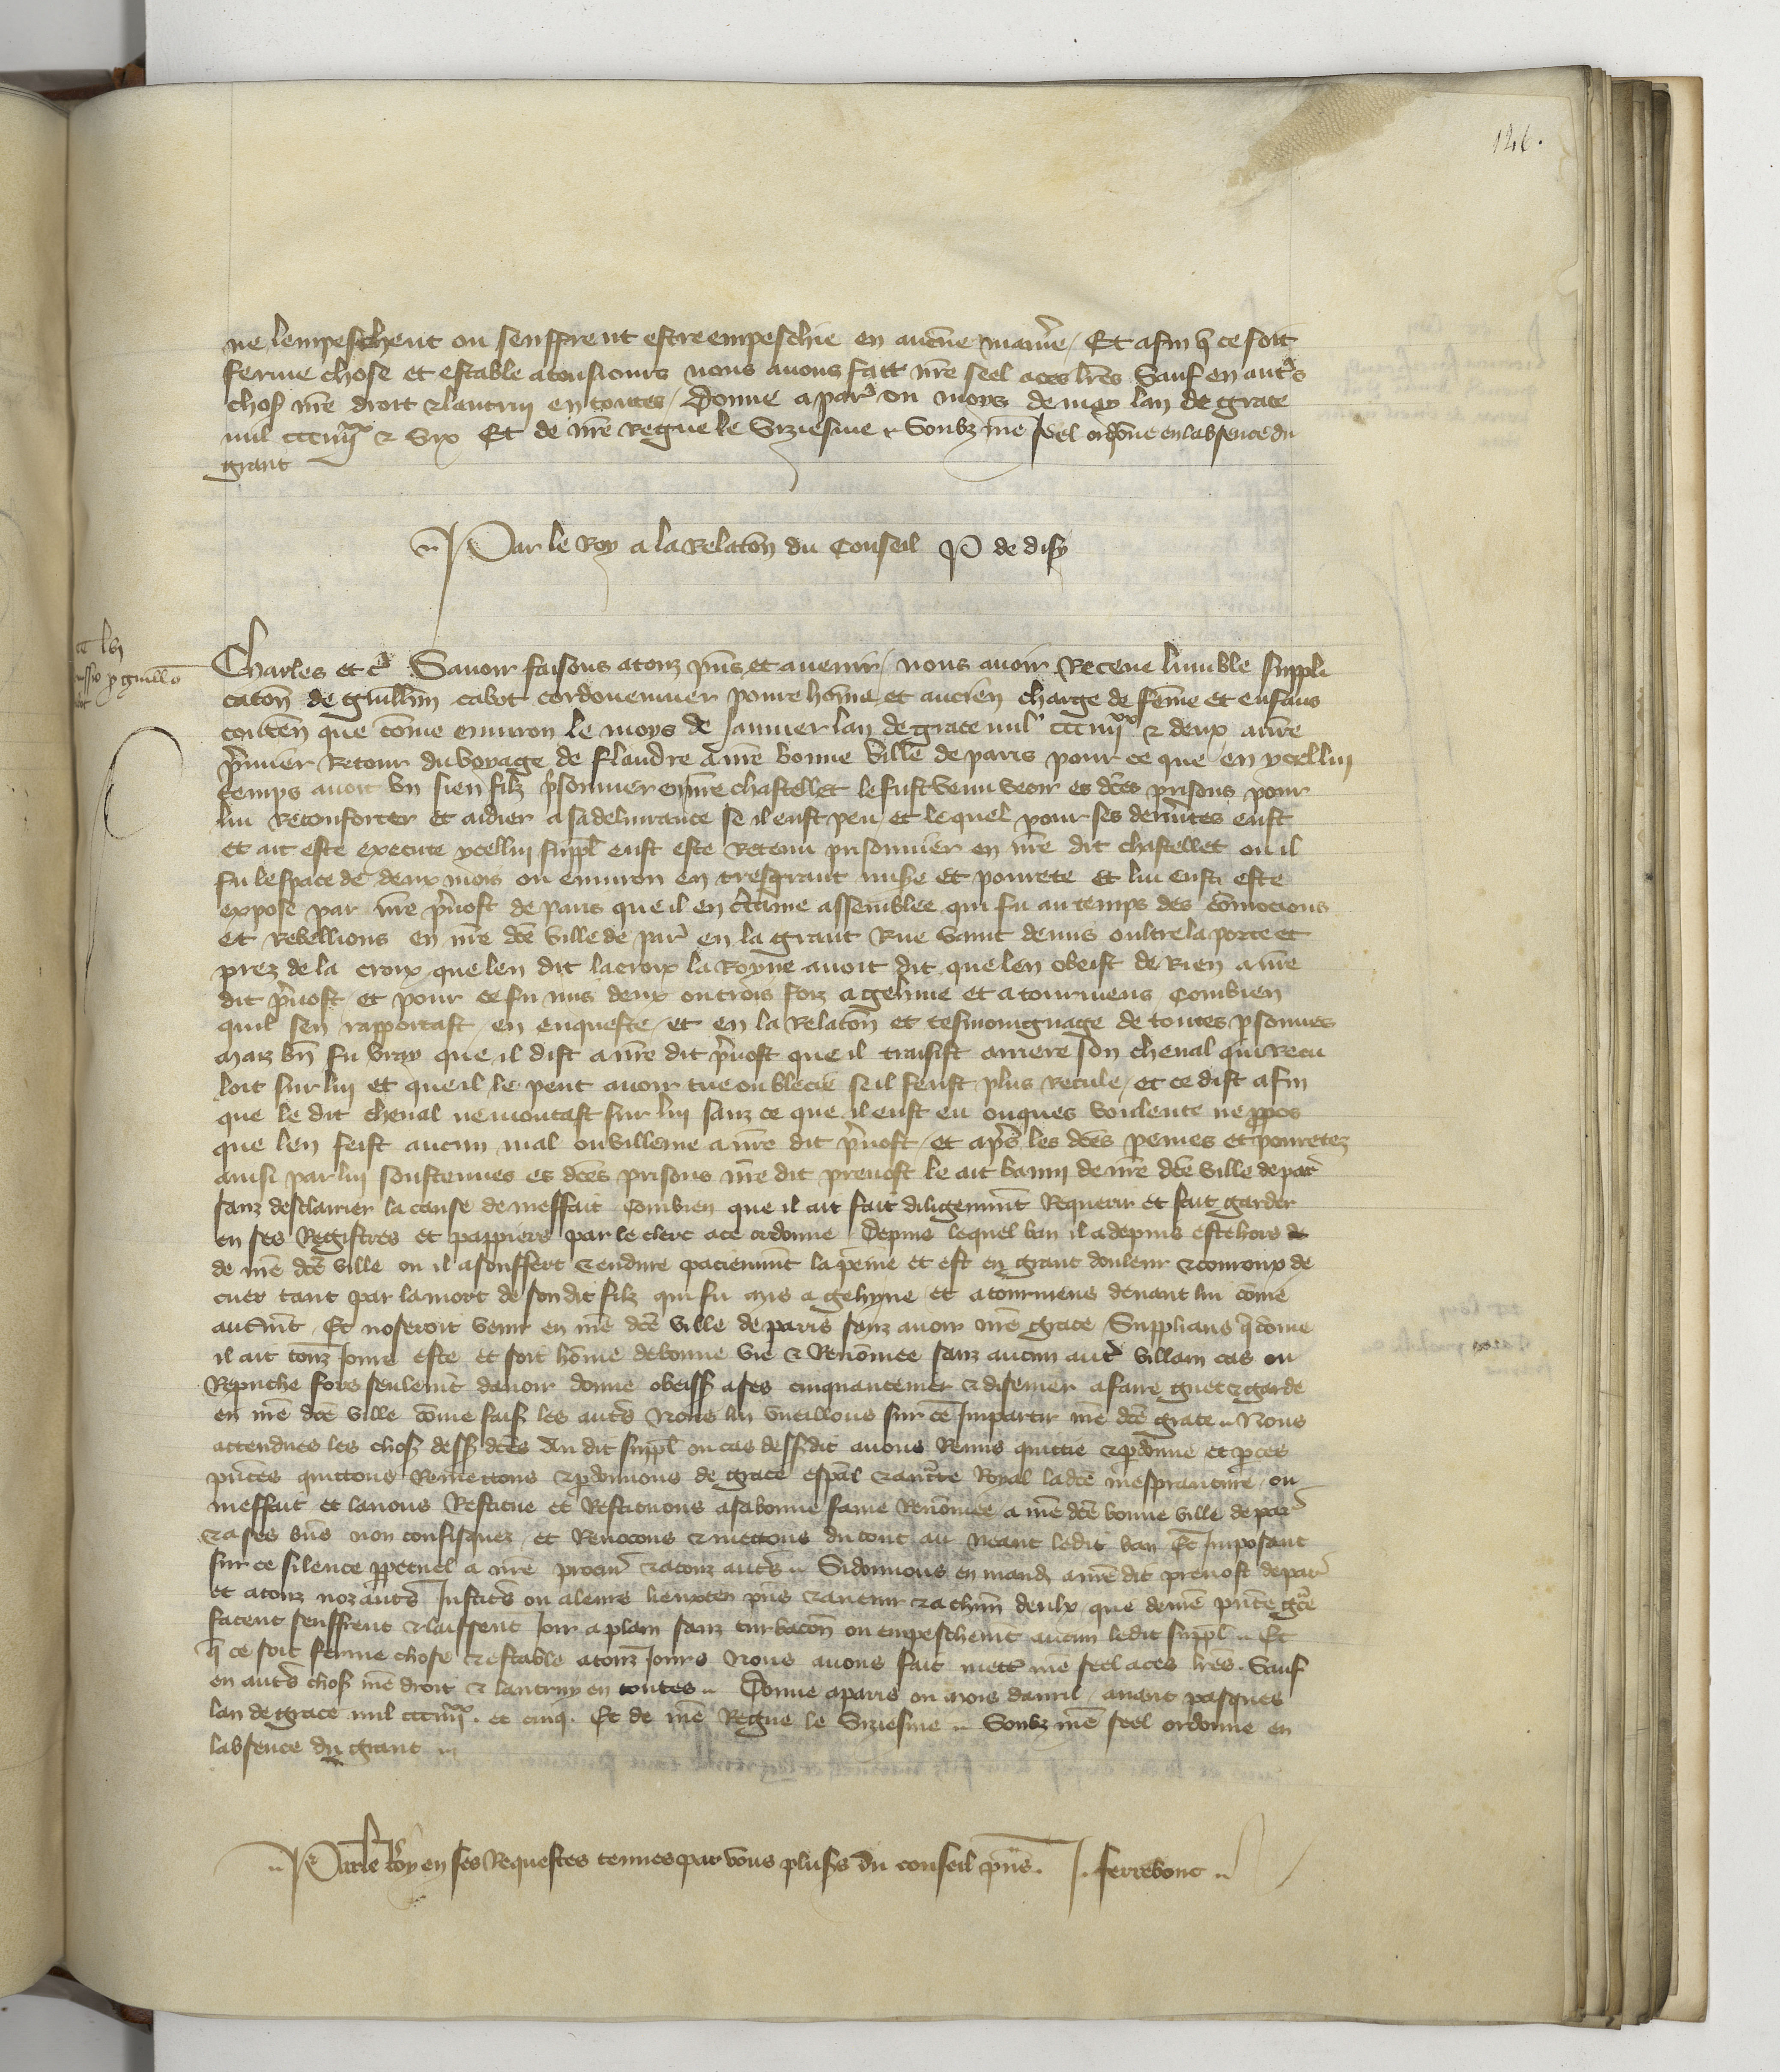 126.
ne lempeschent ou seuffrent estre empeschie en aucūe maniēe / Et afin q̄ ce soit
ferme chose et estable atousiours nous auons fait nr̄e seel a ces lr̄es Sauf en autrs
choses nr̄e droit & lautruy en toutes / Donne a par̄ ou moys de may lan de grace
mil ccc iiijxx & six Et de nr̄e Regne le Siziesme .. Soubz nr̄e seel ordōne en labsence du
grant
.. Par le Roy a la Relatōn du Conseil P de disy
Charles et c̄ Sauoir faisons atouz pn̄s et auenir / nous auoir Receue lumble suppli
catōn de guillm̄ cabot cordouennier poure hōme et ancien charge de fēme et enfans
conten̄ que cōme enuiron le moys de Januier lan de grace mil ccc iiijxx & deux a nr̄e
p̄mier Retour du voyage de flandre a nr̄e bonne ville de paris pour ce que en ycellui
temps auoit vn sien filz p̄sonnier en nr̄e chastellet le fust venu veoir es dc̄es prisons pour
lui Reconforter et aidier a sa deliurance se il eust peu et lequel pour ses demerites eust
et ait este execute ycellui suppl̄ eust este Retenu prisonnier en nr̄e dit chastellet ou il
fu lespace de deux mois ou enuiron en tresgrant misere et pourete et lui eust este
expose par nr̄e p̄uost de paris que il en c̄taine assemblee qui fu au temps des cōmocions
et Rebellions en nr̄e dc̄e ville de par̄ en la grant Rue saint denis oultre la porte et
prez de la croix que len dit la croix la Royne auoit dit que len obeist de Rien a nr̄e
dit p̄uost et pour ce fu mis deux ou trois foiz a gehine et a tourmens Combien
quil sen rapportast en enqueste et en la Relatōn et tesmoingnage de toutes p̄sonnes
maiz bn̄ fu vray que il dist a nr̄e dit p̄uost que il traisist arriere son cheual qui Recu
loit sur lui et que il le peut auoir tue ou blecie se il feust plus recule / et ce dist afin
que le dit cheual ne montast sur lui sanz ce que il eust eu onques voulente ne ppos
que len feist aucun mal ou villenie a nr̄e dit p̄uost / et ap̄s les dc̄es peines et pouretez
ainsi par lui soustenues es dc̄es prisons nr̄e dit preuost le ait banni de nr̄e dc̄e ville de par̄
sanz desclairier la cause de meffait Combien que il ait fait diligenmt̄ Requerir et fait garder
en ses Registres et pappiers par le clerc a ce ordonne / Depuis lequel ban il a depuis este hors de
de nr̄e dc̄e ville ou il a souffert & endure pacienmt̄ la peine et est en grant douleur & courroux de
cuer tant par la mort de son dit filz qui fu mis a gehyne et a tourmens deuant lui cōme
autrem̄t Et noseroit venir en nr̄e dc̄e ville de paris sanz auoir nr̄e grace Supplians q̄ cōme
il ait touz iours este et soit hōme de bonne vie & Renōmee sanz aucun autr̄ villain cas ou
Repruche fors seulemt̄ dauoir donne obeiss a ses cinquantenier & disenier a faire guet & garde
en nr̄e dc̄e ville cōme fais les autrs Nous lui vueillons sur ce Impartir nr̄e dc̄e grace .. Nous
attendues les choses dess dc̄es Au dit suppl̄ ou cas dessdit auons Remis quittie & p̄donne et p̄ ces
pn̄tes quittons Remettons & p̄donnons de grace esp̄al & auct̄te Royal la dc̄e mespranture ou
meffait et lauons Restitue et Restituons a sa bonne fame Renōmee a nr̄e dc̄e bonne ville de par̄
& a ses bn̄s non confisquez et Reuocons & mettons du tout au neant ledit ban Et Imposant
sur ce silence ppetuel a nr̄e procur̄ & a touz autrs .. Si donnons en mand a nr̄e dit preuost de par̄
et a touz noz autrs Justic̄s ou a leurs lieuxten pn̄s & auenir & a chūn deulx que de nr̄e pn̄te gr̄ce
facent seuffrent & laissent Joir a plain sanz turbacōn ou empeschemt̄ aucun ledit suppl̄ .. Et
q̄ ce soit ferme chose & estable a touz Jours Nous auons fait mettr̄ nr̄e seel a ces lr̄es . Sauf
en autrs choses nr̄e droit & lautruy en toutes .. Donne a paris ou mois dauril auant pasques
lan de grace mil ccc iiijxx . et cinq . Et de nr̄e Regne le Siziesme .. Soubz nr̄e seel ordonne en
labsence du grant ..
.. Par le Roy en ses Requestes tenues par vous plus̄s du conseil pn̄s . J. ferrebouc ..